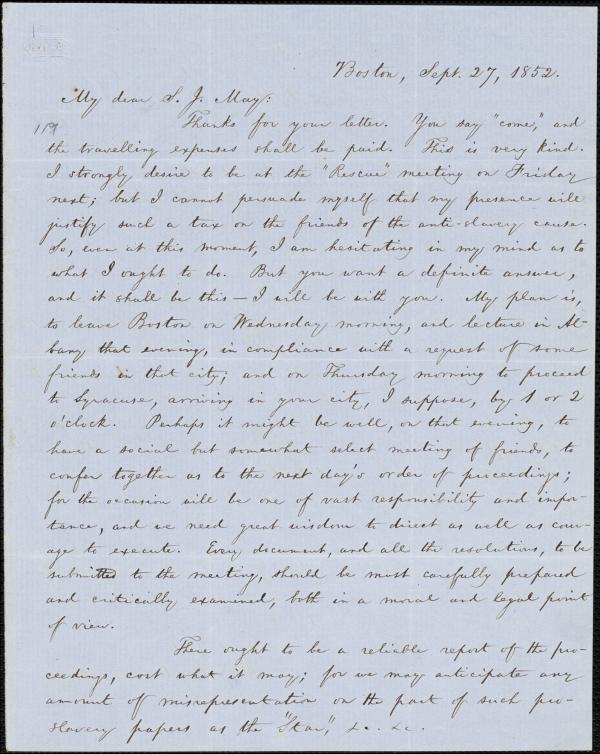 Boston, Sept. 27, 1852.
My dear S. J. May:
119
Thanks for your letter. You say "come," and
the travelling expenses shall be paid. This is very kind.
I strongly desire to be at the "Rescue" meeting on Friday
next; but I cannot persuade myself that my presence will
justify such a tax on the friends of the anti-slavery cause.
So, even at this moment, I am hesitating in my mind as to
what I ought to do. But you want a definite answer,
and it shall be this — I will be with you. My plan is,
to leave Boston on Wednesday morning, and lecture in Al-
bany that evening, in compliance with a request of some
friends in that city; and on Thursday morning to proceed
to Syracuse, arriving in your city, I suppose, by 1 or 2
o'clock. Perhaps it might be well, on that evening, to
have a social but somewhat select meeting of friends, to
confer together as to the next day's order of proceedings;
for the occasion will be one of vast responsibility and impor-
tance, and we need great wisdom to direct as well as cour-
age to execute. Every document, and all the resolutions, to be
submitted to the meeting, should be most carefully prepared
and critically examined, both in a moral and legal point
of view.
There ought to be a reliable report of the pro-
ceedings, cost what it may; for we may anticipate any
amount of misrepresentation on the part of such pro-
slavery papers as the "Star," &c. &c.